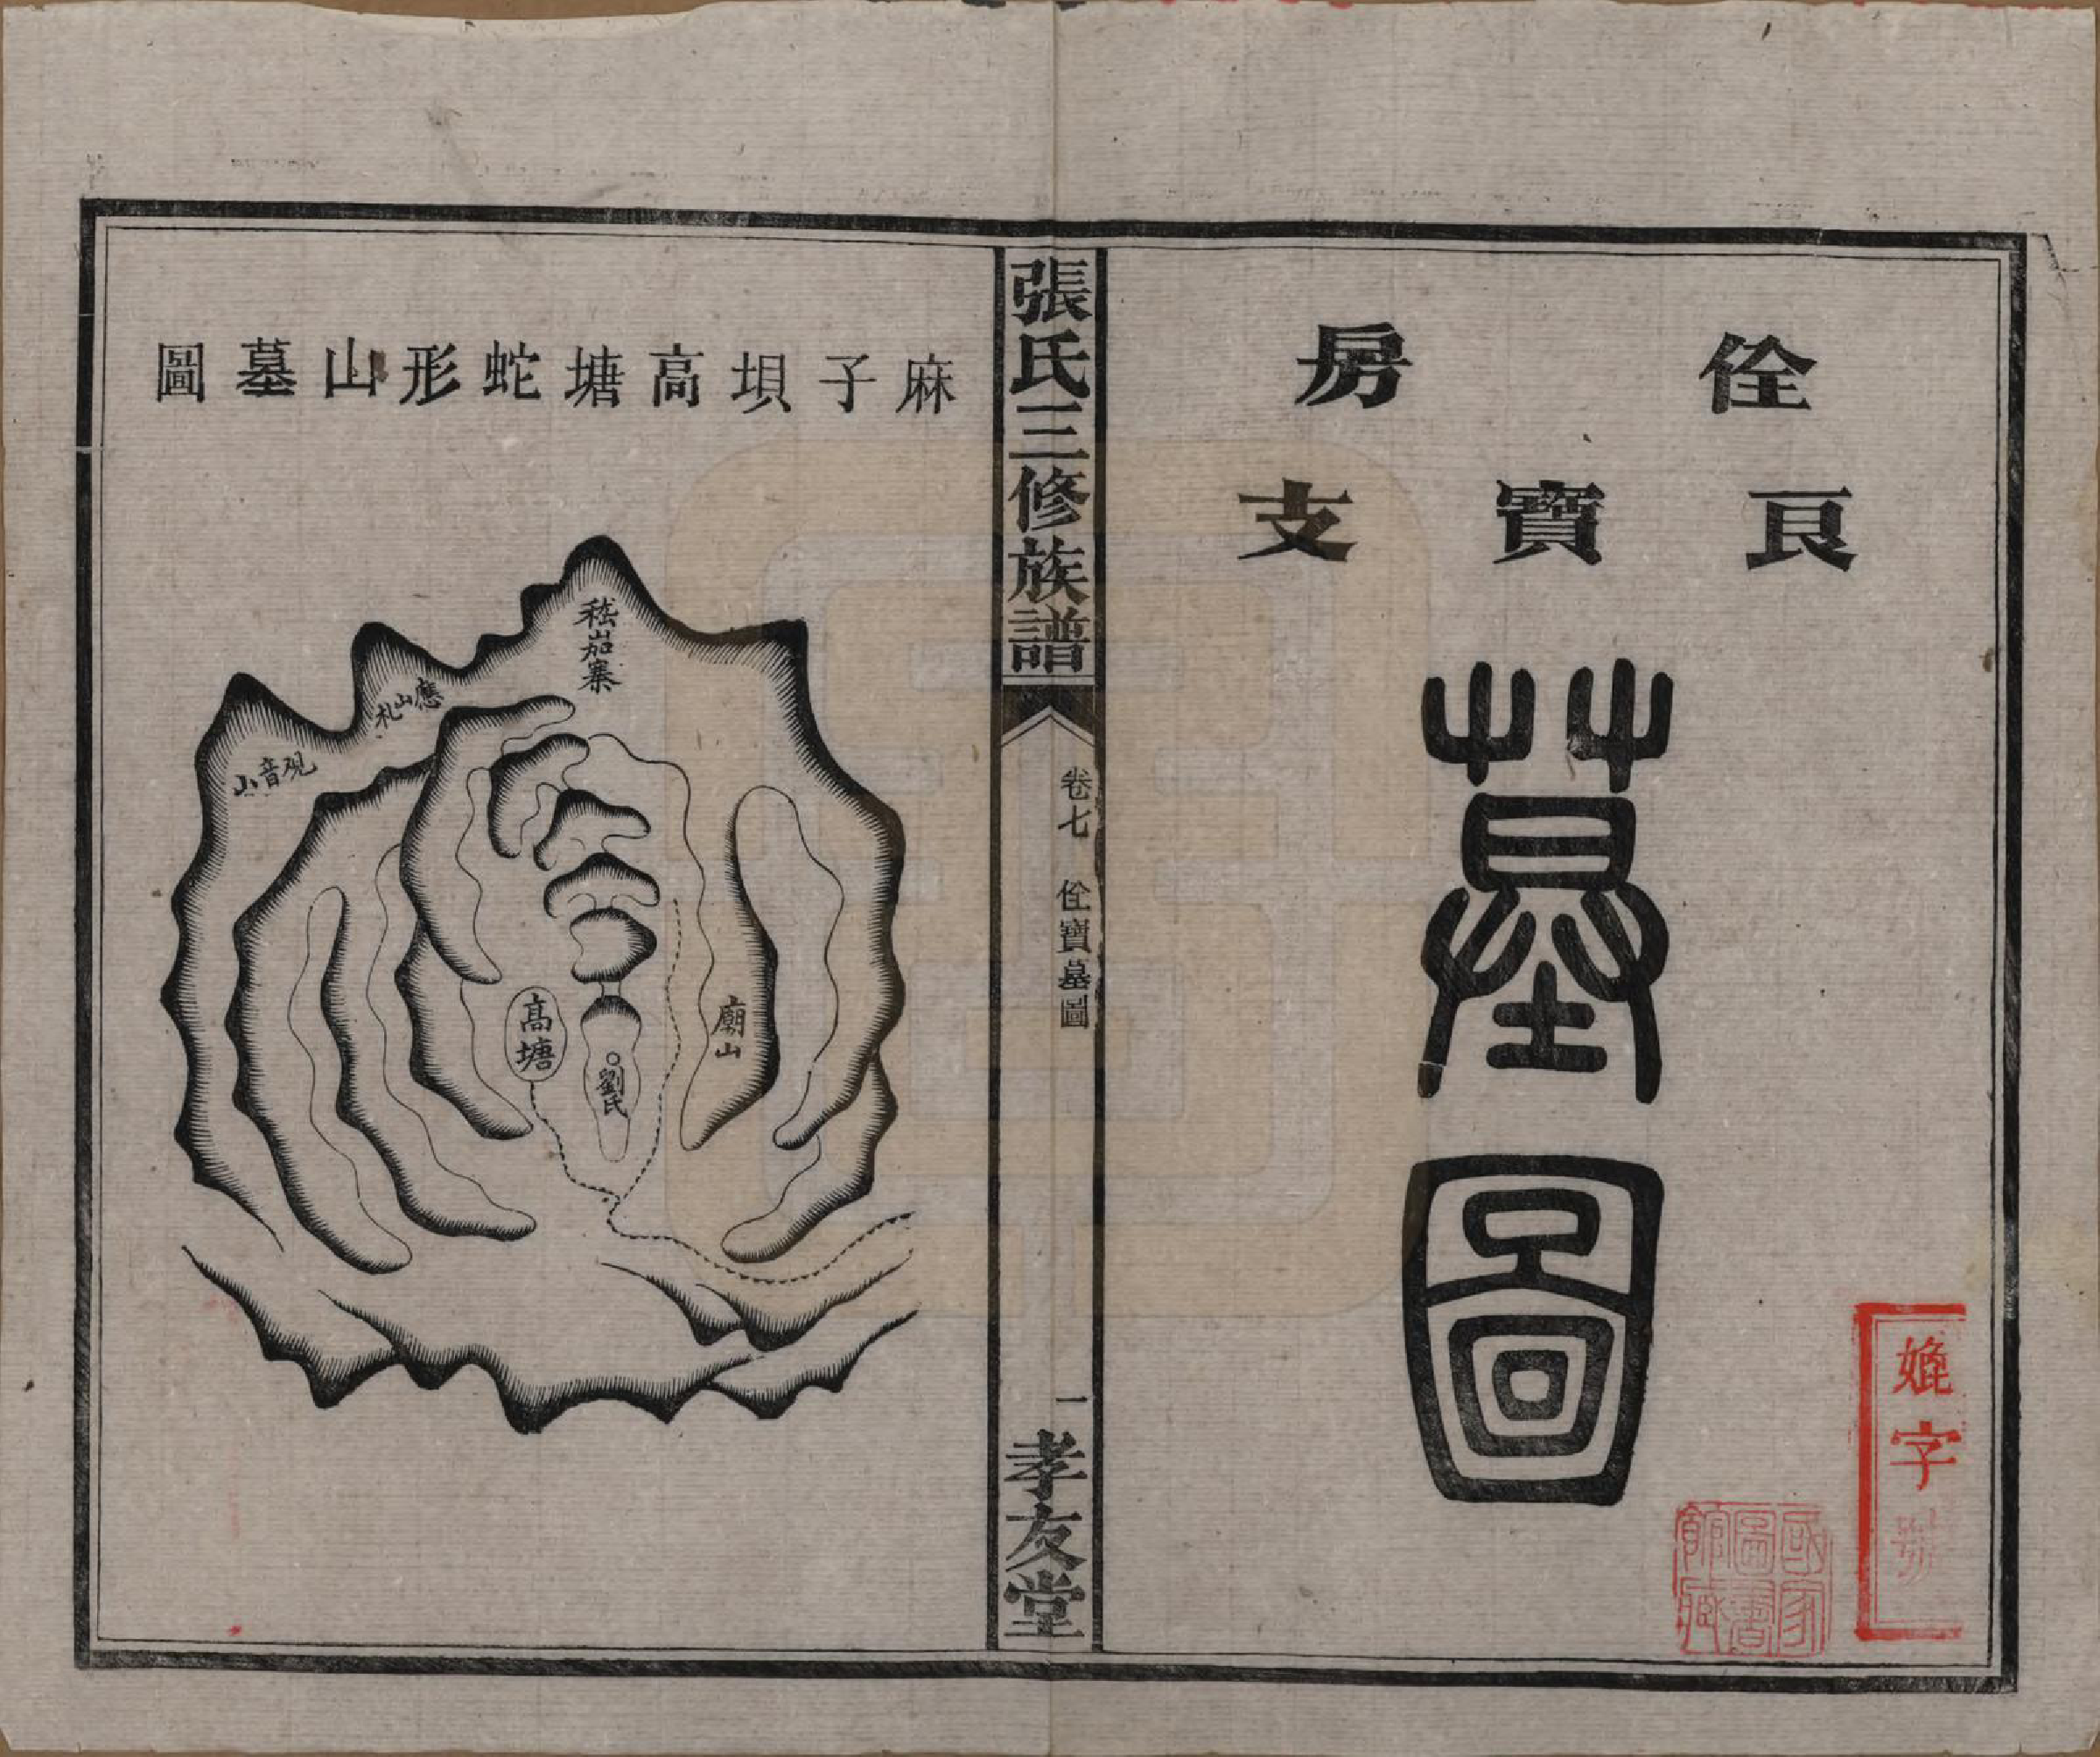 佺房
良寶支
墓圖
娩字號
國家圖書館藏
張氏三修族譜
卷七 佺寶墓圖
一
孝友堂
麻子坝高塘蛇形山墓圖
嵇加寨
應山札
观音山
高塘
劉氏
廟山